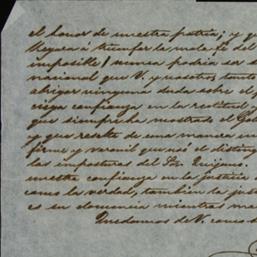 el honor de nuestra patria; y q
llegara á triunfar la mala fe del
imposible! nunca podria ser s
nacional que V. y nosotros, tanto
abrigar ninguna duda sobre el
ciega confianza en la rectitud
que siempre ha mostrado el Go
y que rebate de una manera
firme y varonil que usó el disting
las imposturas del Sr. Quijano,
nuestra confianza en la justicia
como la verdad, tambien la jus
es su demencia mientras
Quedamos de V. como